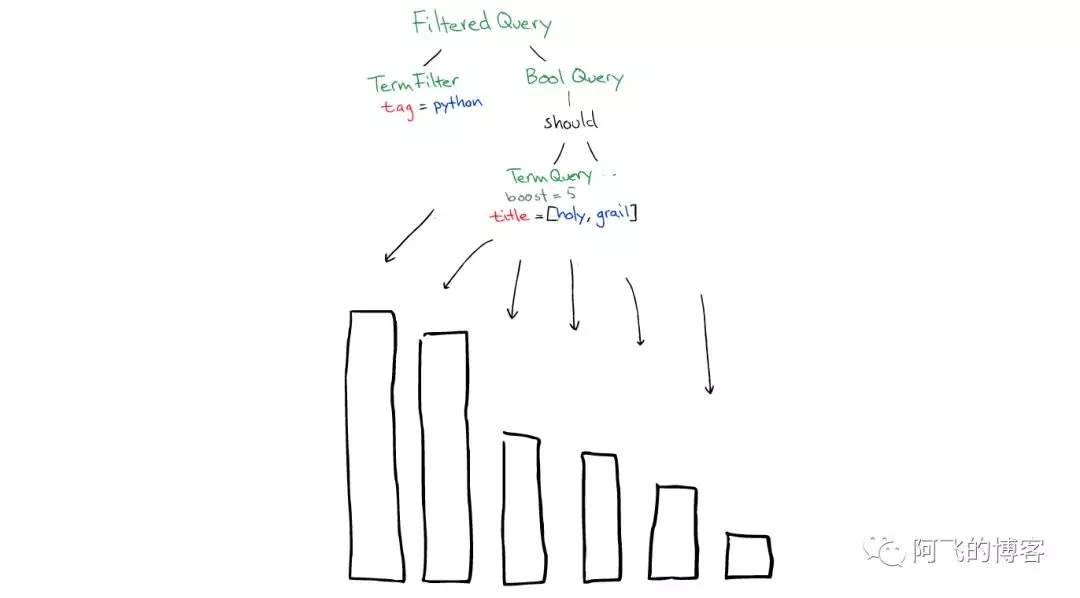 Filtered Query
TermFilter
tag = python
Bool Query
should
TermQuery ..
boost = 5
title = [holy, grail]
阿飞的博客